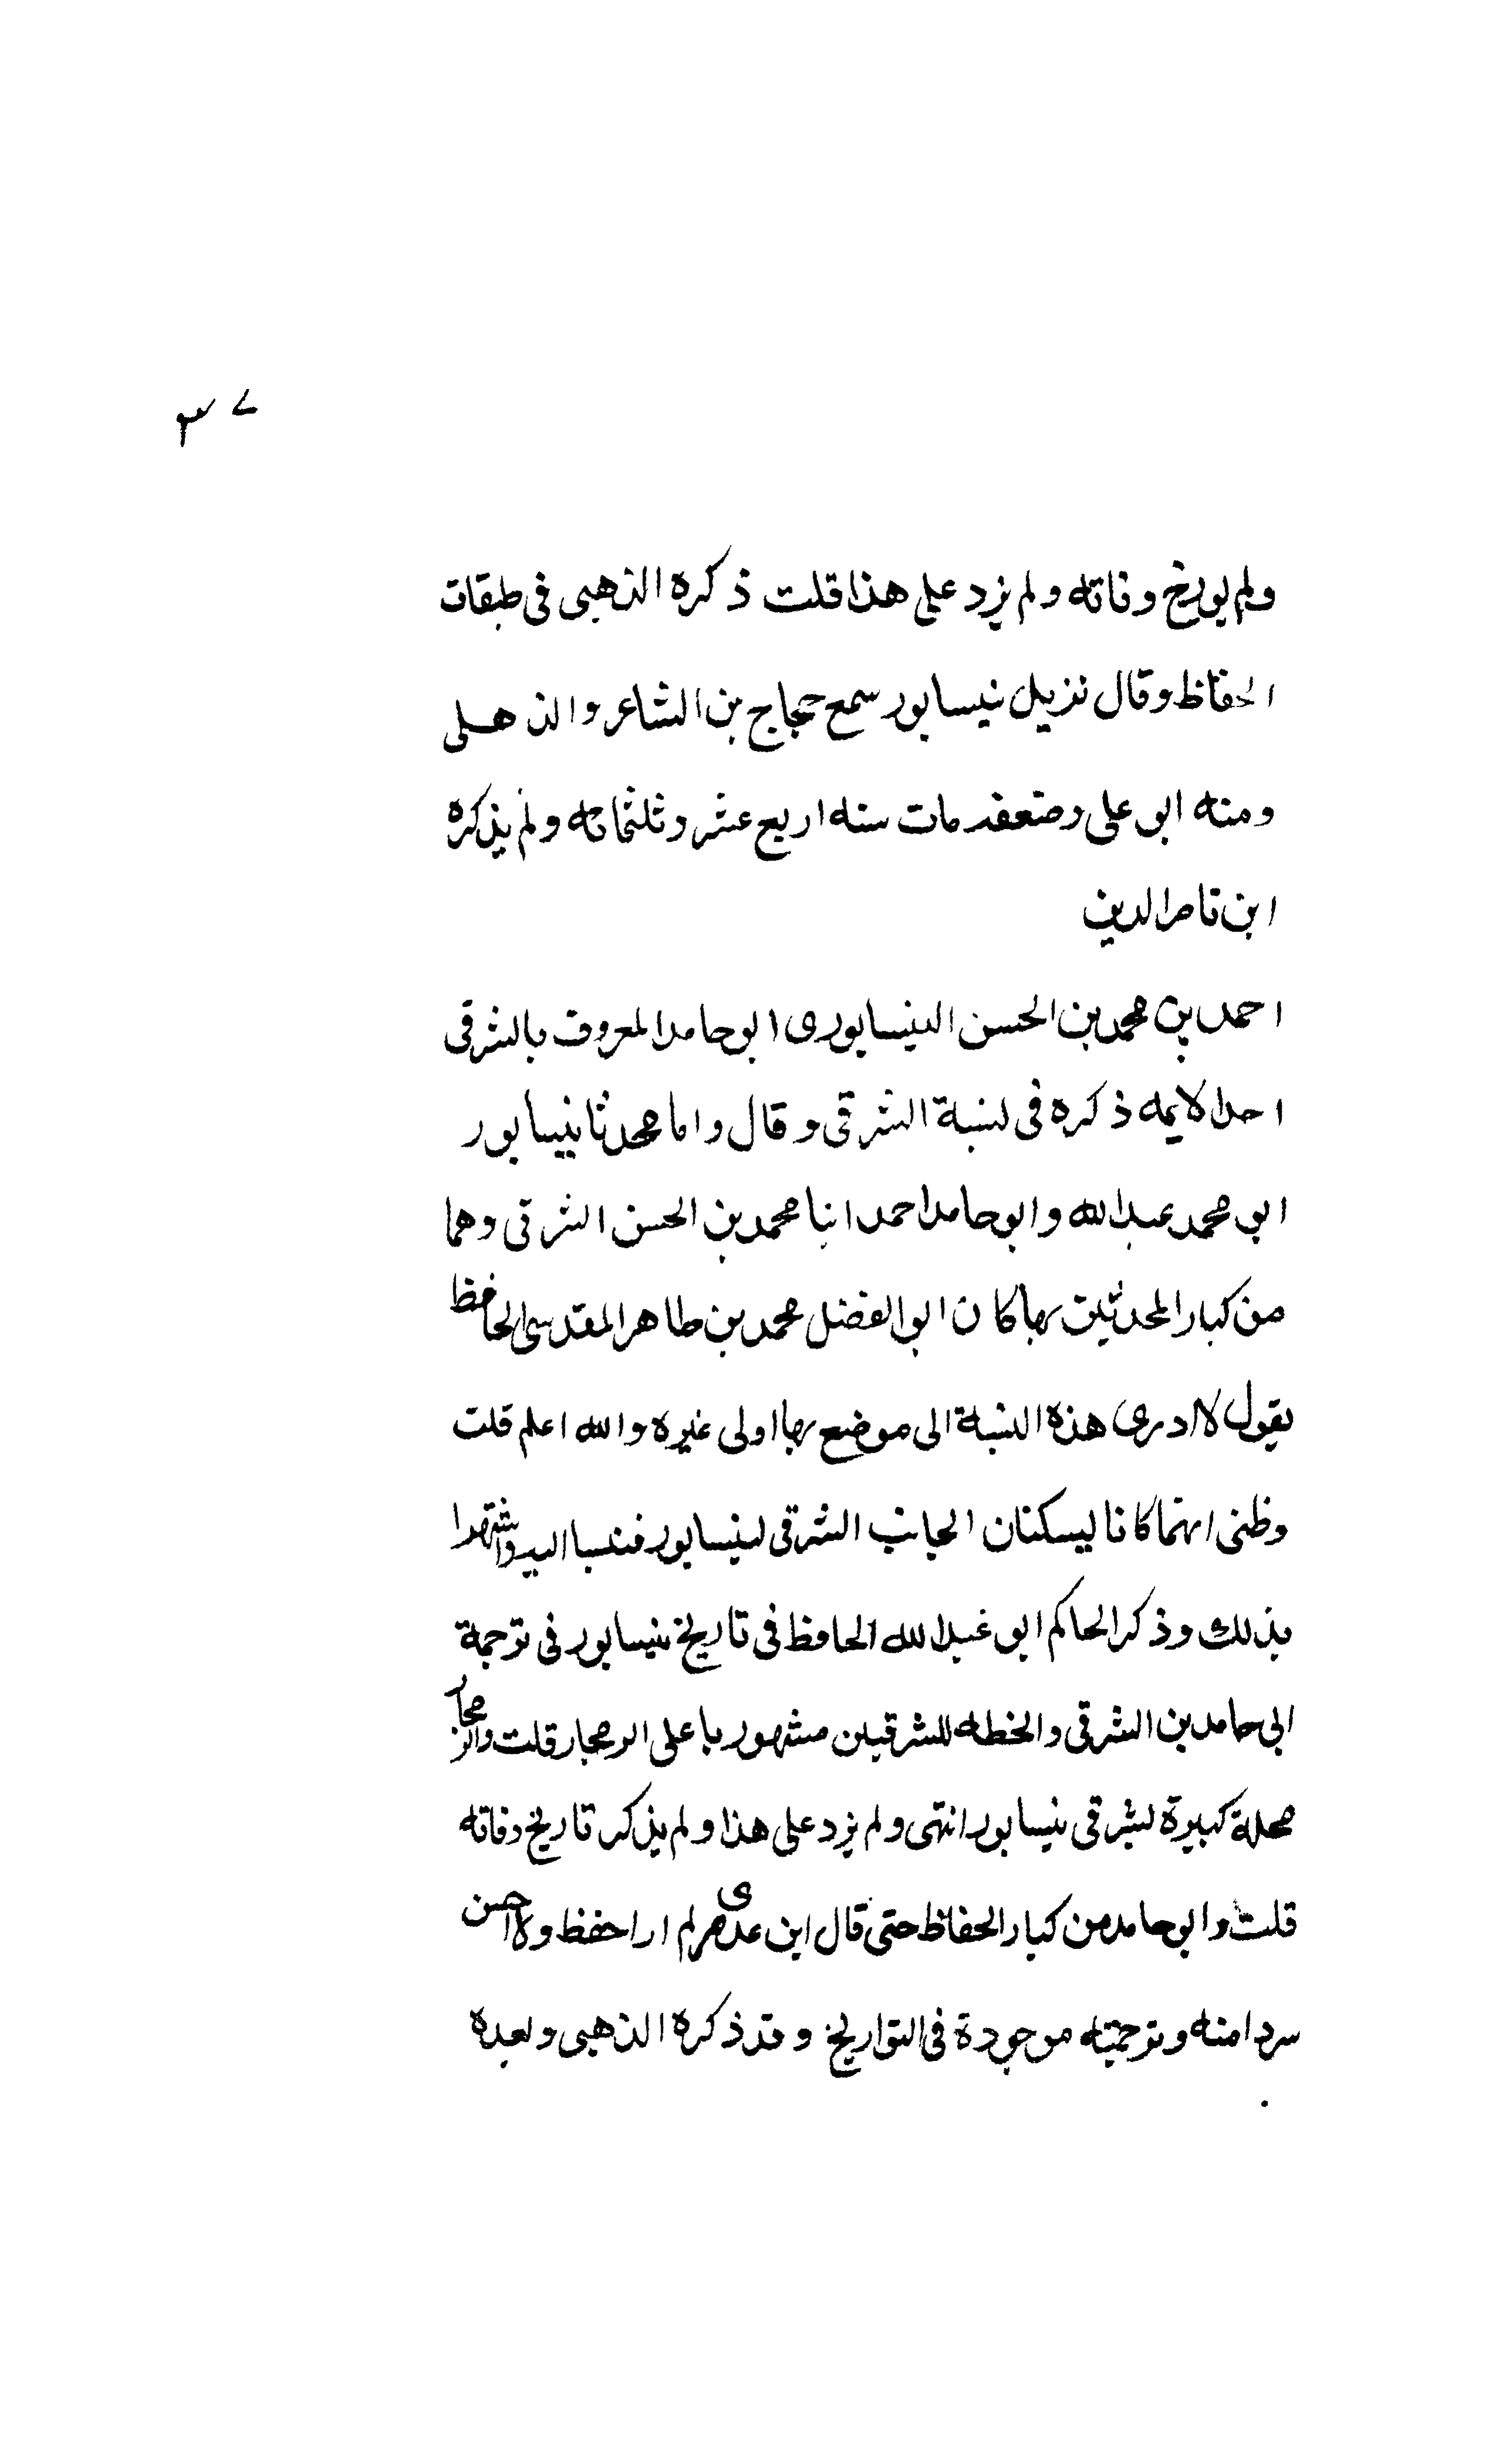 ٣٧
ولم يورخ وفاته ولم يزد على هذا قلت ذكره الذهبى فى طبقات
الحفاظ وقال نزيل نيسابور سمع حجاج بن الشاعر والذهلى
ومنه ابو على وضعفه مات سنه اربع عشر وثلثماته ولم يذكره
ابن ناصر الدين
احمد بن محمد بن الحسن النيسابورى ابو حامد المعروف بالشرقى
احد الايمه ذكره فى نسبة الشرقى وقال واما محدثا نيسابور
ابو محمد عبد الله وابو حامد احمد ابنا محمد بن الحسن الشرقى وهما
من كبار المحدثين بها كان ابو الفضل محمد بن طاهر المقدسى الحافظ
يقول لا ادرى هذه النسبة الى موضع بها او لى غيره والله اعلم قلت
وظنى انهما كانا يسكنان الجانب الشرقى لنيسابور فنسبا اليه واشتهرا
بذلك وذكر الحاكم ابو عبد الله الحافظ فى تاريخ نيسابور فى ترجمة
ابى حامد بن الشرقى والخطه للشرقيين مشهور باعلى الرمجار قلت والرمجار
محلة كبيرة بشرقى نيسابور انتهى ولم يزد على هذا ولم يذكر تاريخ وفاته
قلت وابو حامد من كبار الحفاظ حتى قال ابن عدى لم ار احفظ ولا احسن
سردا منه وترجمته موجودة فى التواريخ وقد ذكره الذهبى وبعده